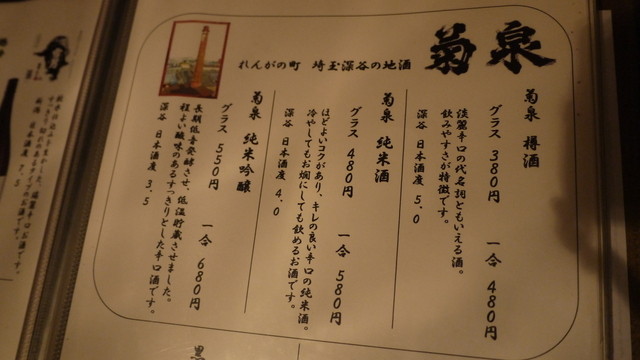 菊泉
れんがの町 埼玉深谷の地酒
菊泉 樽酒
グラス 380円 一合 480円
淡麗辛口の代名詞ともいえる酒。
飲みやすさが特徴です。
深谷 日本酒度 5.0
菊泉 純米酒
グラス 480円 一合 580円
ほどよいコクがあり、キレの良い辛口の純米酒。
冷やしてもお燗にしても飲めるお酒です。
深谷 日本酒度 4.0
菊泉 純米吟醸
グラス 550円 一合 680円
長期低音発酵させ、低温貯蔵させました。
程よい酸味のあるすっきりとした辛口酒です。
深谷 日本酒度 3.5